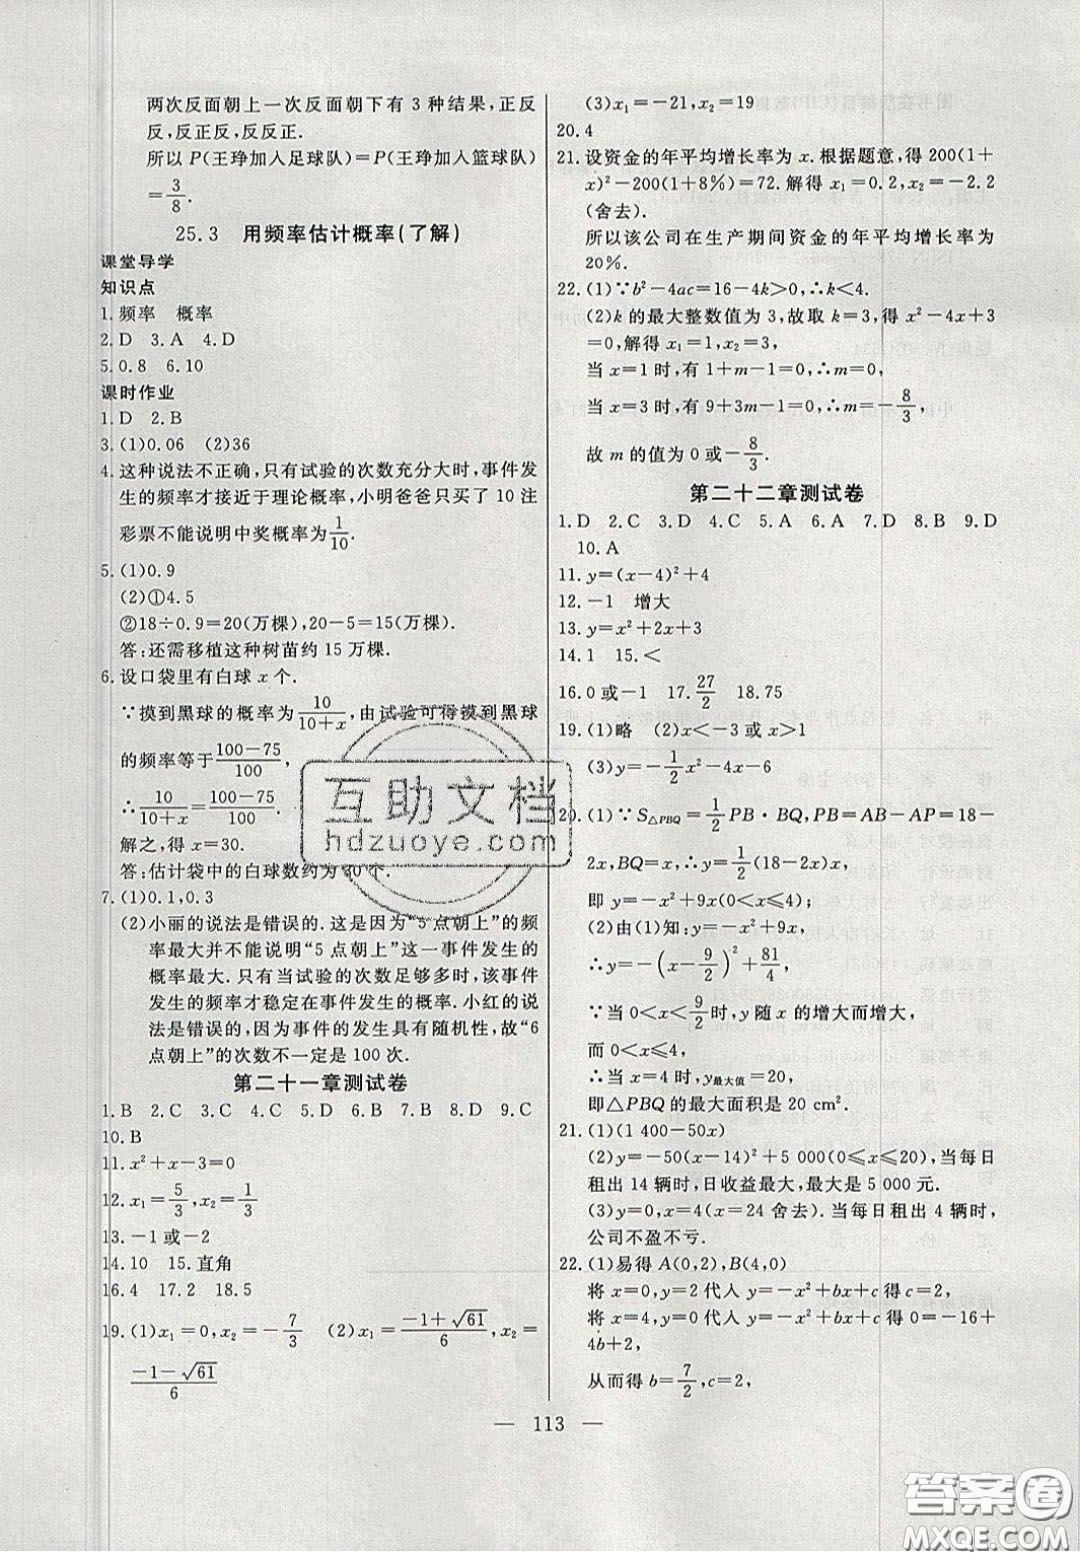 两次反面朝上一次反面朝下有3种结果,正反
反,反正反,反反正.
所以 P(王琤加入足球队)=P(王琤加入篮球队)
=3/8.
25.3 用频率估计概率(了解)
课堂导学
知识点
1.频率 概率
2.D 3.A 4.D
5.0.8 6.10
课时作业
1.D 2.B
3.(1)0.06 (2)36
4.这种说法不正确,只有试验的次数充分大时,事件发
生的频率才接近于理论概率,小明爸爸只买了10注
彩票不能说明中奖概率为1/10.
5.(1)0.9
(2)①4.5
②18÷0.9=20(万棵),20-5=15(万棵).
答:还需移植这种树苗约15万棵.
6.设口袋里有白球 x 个.
∵摸到黑球的概率为10/(10+x),由试验可得摸到黑球
的频率等于(100-75)/100,
∴10/(10+x)=(100-75)/100.
解之,得 x=30.
答:估计袋中的白球数约为30个.
7.(1)0.1,0.3
(2)小丽的说法是错误的.这是因为“5点朝上”的频
率最大并不能说明“5点朝上”这一事件发生的
概率最大.只有当试验的次数足够多时,该事件
发生的频率才稳定在事件发生的概率.小红的说
法是错误的,因为事件的发生具有随机性,故“6
点朝上”的次数不一定是100次.
第二十一章测试卷
1.B 2.C 3.C 4.C 5.D 6.B 7.B 8.D 9.C
10.B
11.x²+x-3=0
12.x₁=5/3,x₂=1/3
13.-1或-2
14.10 15.直角
16.4 17.2 18.5
19.(1)x₁=0,x₂=-7/3 (2)x₁=(-1+√61)/6,x₂=
(-1-√61)/6
(3)x₁=-21,x₂=19
20.4
21.设资金的年平均增长率为 x.根据题意,得200(1+
x)²-200(1+8%)=72.解得 x₁=0.2,x₂=-2.2
(舍去).
所以该公司在生产期间资金的年平均增长率为
20%.
22.(1)∵b²-4ac=16-4k>0,∴k<4.
(2)k 的最大整数值为3,故取 k=3,得 x²-4x+3
=0,解得 x₁=1,x₂=3,
当 x=1时,有1+m-1=0,∴m=0,
当 x=3时,有9+3m-1=0,∴m=-8/3,
故 m 的值为0或-8/3.
第二十二章测试卷
1.D 2.C 3.D 4.C 5.A 6.A 7.D 8.B 9.D
10.A
11.y=(x-4)²+4
12.-1 增大
13.y=x²+2x+3
14.1 15.<
16.0或-1 17.27/2 18.75
19.(1)略 (2)x<-3或 x>1
(3)y=-1/2x²-4x-6
20.(1)∵S△PBQ=1/2PB·BQ,PB=AB-AP=18-
2x,BQ=x,∴y=1/2(18-2x)x,
即 y=-x²+9x(0<x≤4);
(2)由(1)知:y=-x²+9x,
∴y=-(x-9/2)²+81/4,
∵当0<x<9/2时,y 随 x 的增大而增大,
而0<x≤4,
∴当 x=4时,y最大值=20,
即△PBQ 的最大面积是20 cm².
21.(1)(1 400-50x)
(2)y=-50(x-14)²+5 000(0≤x≤20),当每日
租出14辆时,日收益最大,最大是5 000元.
(3)y=0,x=4(x=24舍去).当每日租出4辆时,
公司不盈不亏.
22.(1)易得 A(0,2),B(4,0)
将 x=0,y=2代入 y=-x²+bx+c 得 c=2,
将 x=4,y=0代入 y=-x²+bx+c 得0=-16+
4b+2,
从而得 b=7/2,c=2,
— 113 —
互助文档
hdzuoye.com
答案圈
MXQE.COM